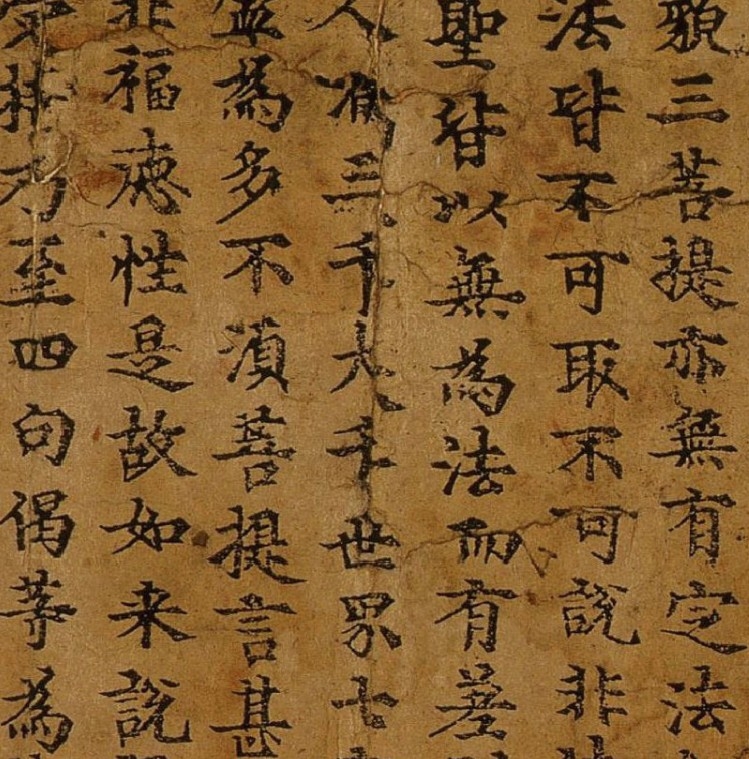 藐三菩提亦無有定法
法皆不可取不可說非
聖皆以無為法而有差
人滿三千大千世界七
寧為多不須菩提言甚
非福德性是故如来說
受持乃至四句偈等為